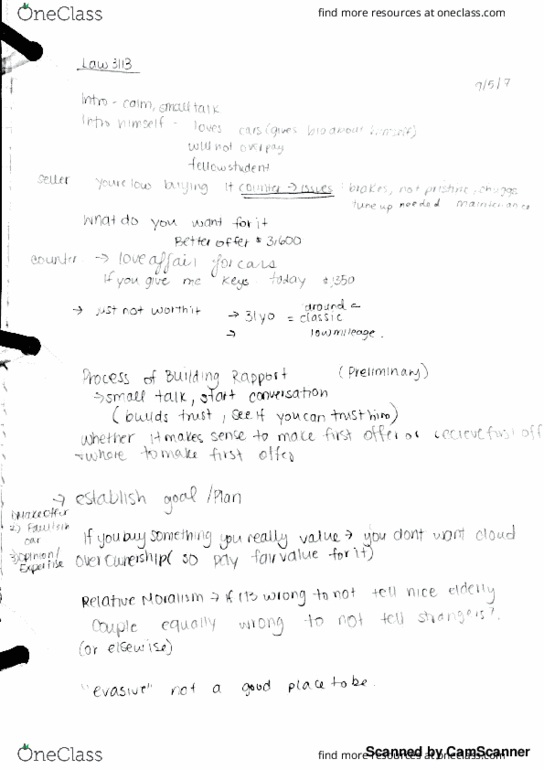 OneClass
find more resources at oneclass.com
Law 3113
9/5/7
Intro - calm, small talk
Intro himself - loves cars (gives bio about himself)
will not overpay
fellow student
seller you're low buying it counter → issues brakes, not pristine, chugs
tune up needed maintenance
What do you want for it
Better offer $ 3,600
counter → love affair for cars
If you give me keys today $1350
→ just not worth it → 31 yo = classic
around =
→ low mileage.
Process of Building Rapport (Preliminary)
→ small talk, start conversation
(builds trust, see if you can trust him)
whether it makes sense to make first offer or recieve first off
→ where to make first offer
→ establish goal / Plan
2) Fault in car
3) opinion / Expertise
If you buy something you really value → you dont want cloud
over ownership (so pay fair value for it)
Relative Moralism → if its wrong to not tell nice elderly
couple equally wrong to not tell strangers?
(or elsewise)
"evasive" not a good place to be.
OneClass
find more resources at oneclass.com
Scanned by CamScanner